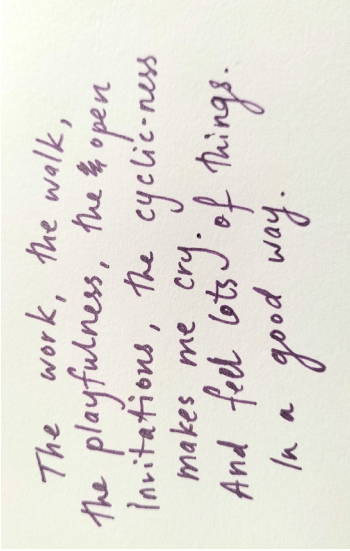 The work, the walk,
the playfulness, the open
Invitations, the cyclic-ness
makes me cry.
And feel lots of things.
In a good way.